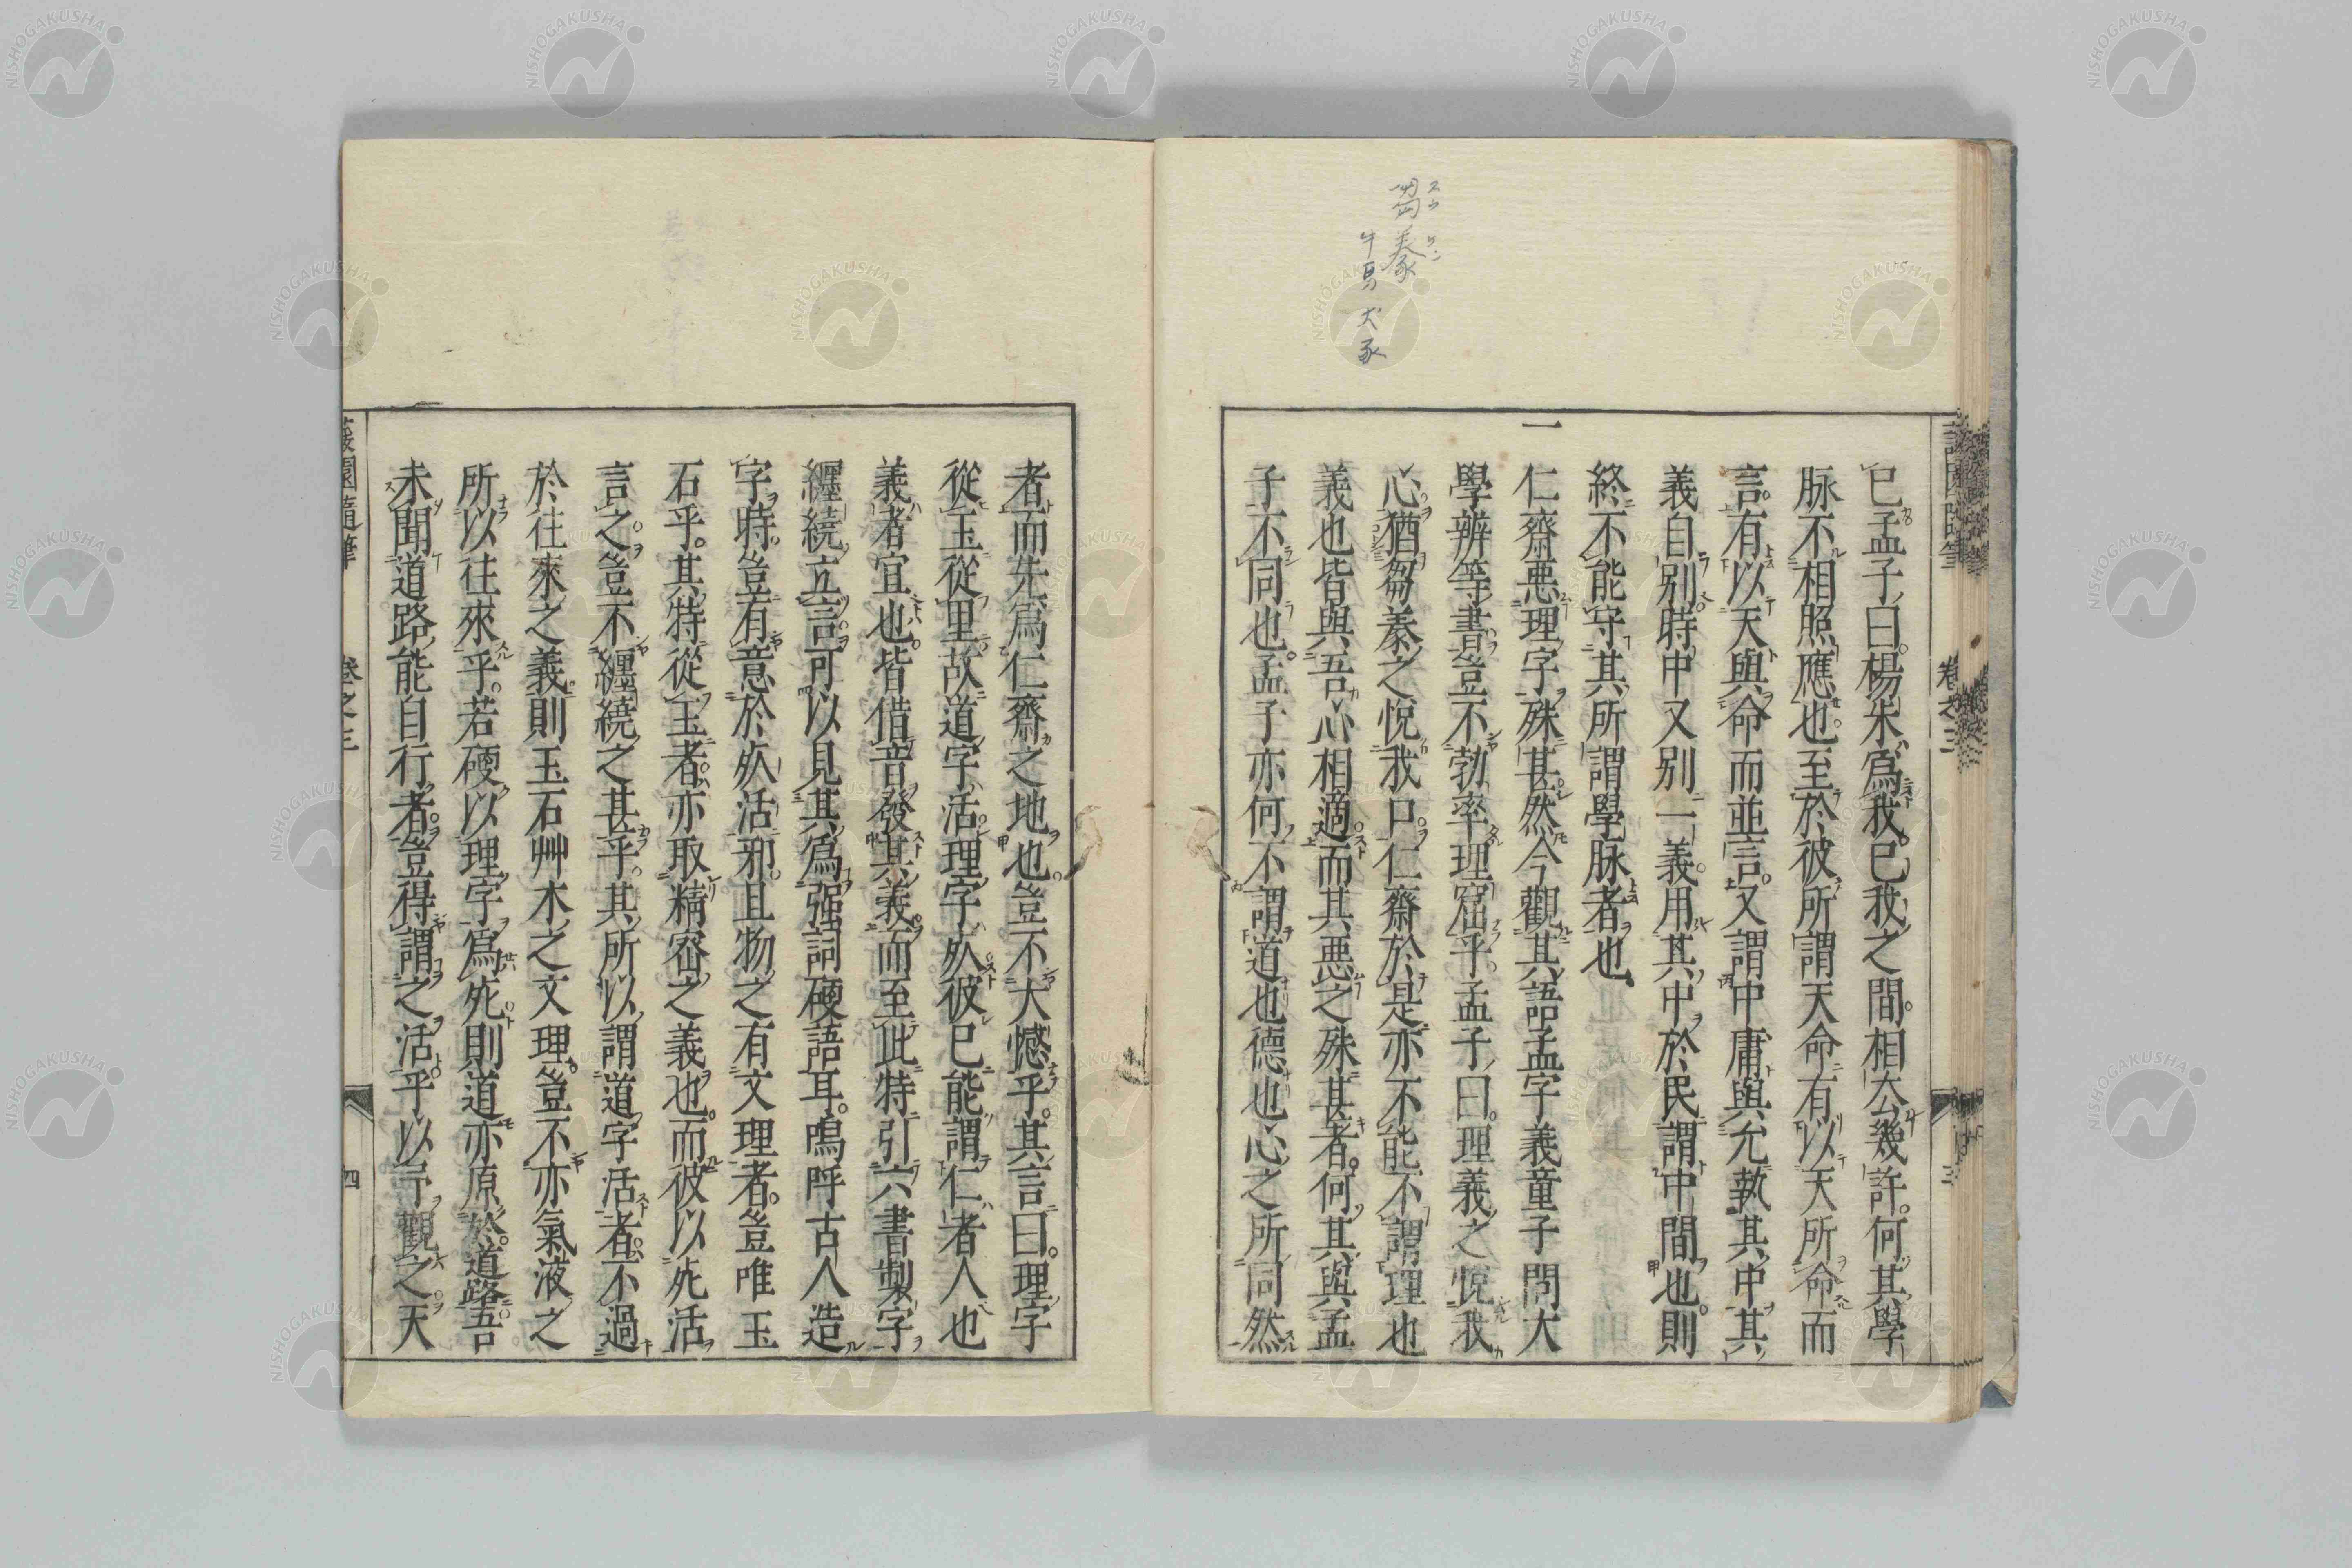 芻豢
牛馬犬豕
己孟子曰楊朱爲我己我之間相去幾許何其學
脉不相照應也至於彼所謂天命有以天所命而
言有以天與命而並言又謂中庸與允執其中其
義自別時中又別一義用其中於民謂中間也則
終不能守其所謂學脉者也
一仁齋惡理字殊甚然今觀其語孟字義童子問大
學辨等書豈不勃率理窟乎孟子曰理義之悅我
心猶芻豢之悅我口仁齋於是亦不能不謂理也
義也皆與吾心相適而其惡之殊甚者何其與孟
子不同也孟子亦何不謂道也德也心之所同然
者而先爲仁齋之地也豈不大憾乎其言曰理字
從玉從里故道字活理字死彼已能謂仁者人也
義者宜也皆借音發其義而至此特引六書製字
纏繞立言可以見其爲强詞硬語耳嗚呼古人造
字時豈有意於死活邪且物之有文理者豈唯玉
石乎其特從玉者亦取精密之義也而彼以死活
言之豈不纏繞之甚乎其所以謂道字活者不過
於往來之義則玉石艸木之文理豈不亦氣液之
所以往來乎若硬以理字爲死則道亦原於道路吾
未聞道路能自行者豈得謂之活乎以予觀之天
蘐園隨筆 卷之三 四
NISHOGAKUSHA